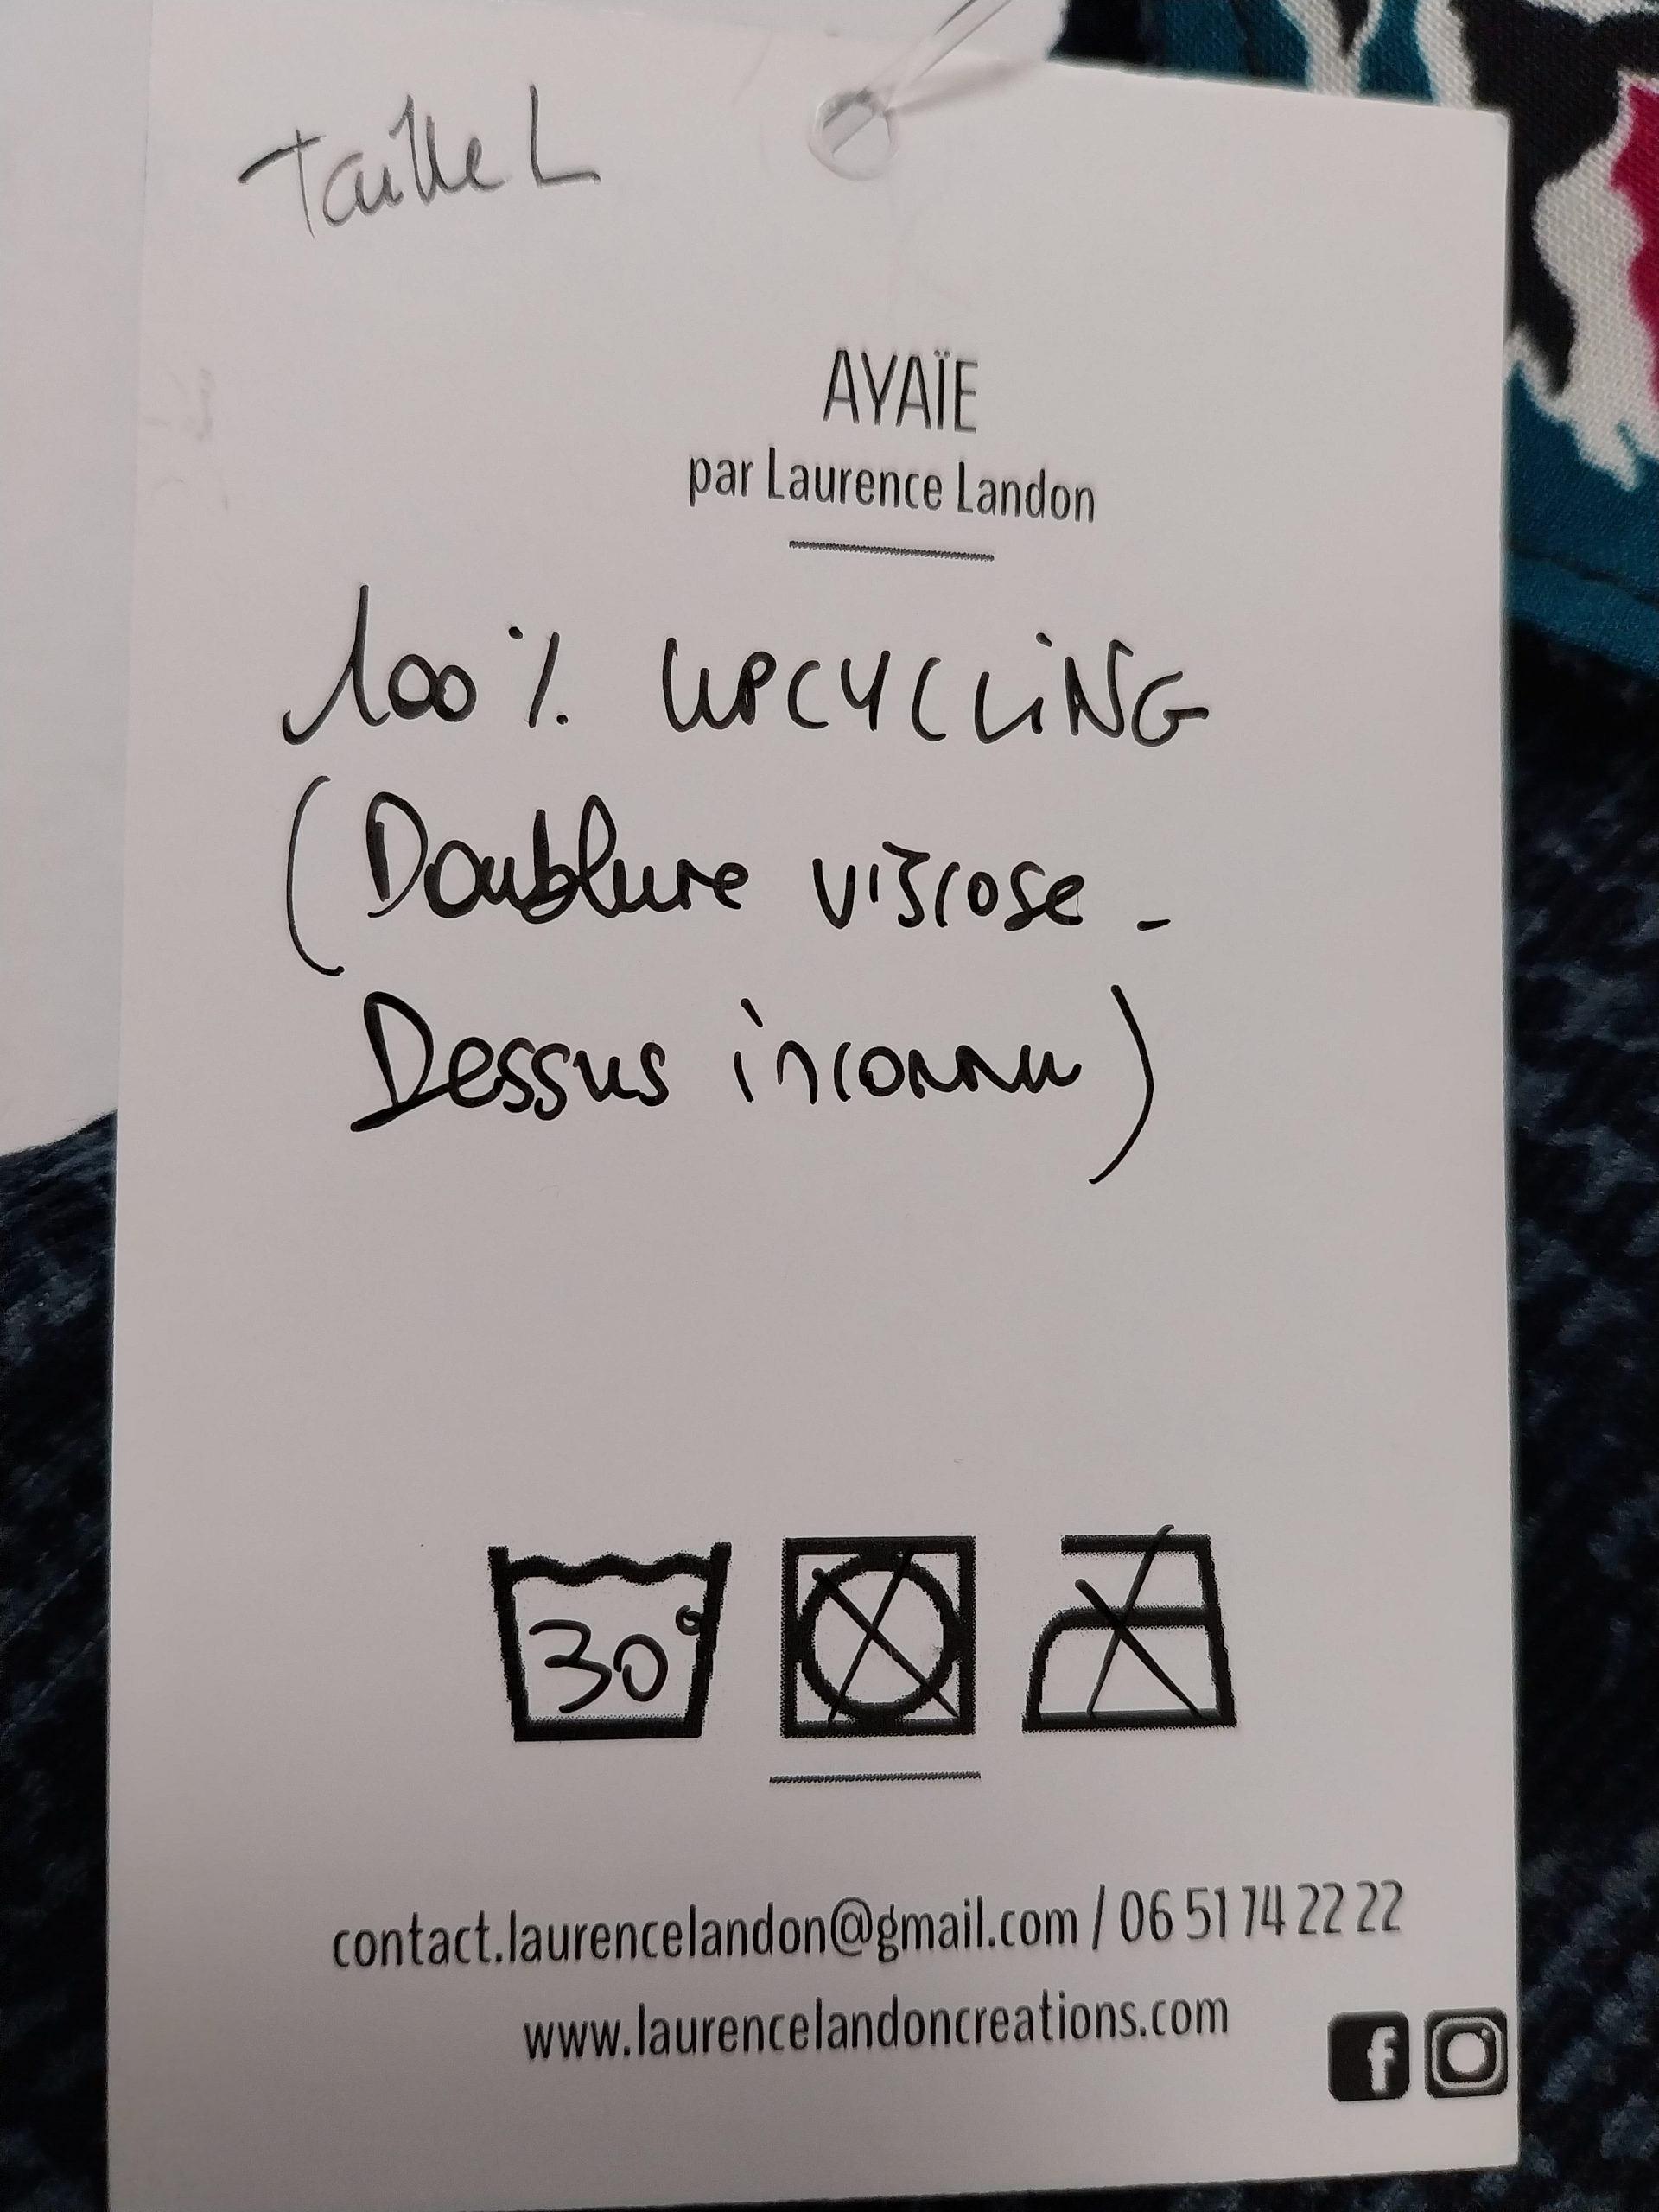 Taille L
AYAÏE
par Laurence Landon
100% UPCYCLING
(Doublure viscose -
Dessus inconnu)
30°
contact.laurencelandon@gmail.com / 06 51 74 22 22
www.laurencelandoncreations.com